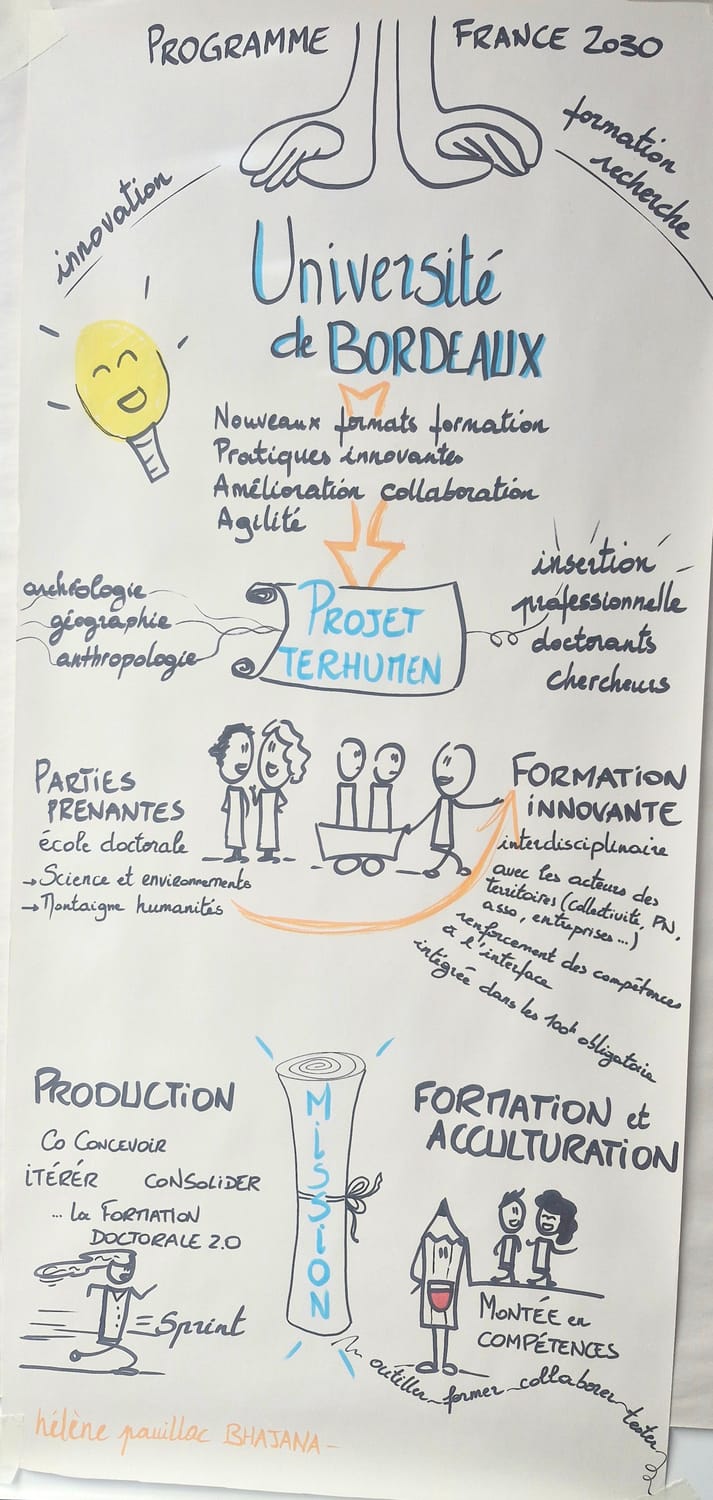 PROGRAMME FRANCE 2030
innovation
formation
recherche
Université
de BORDEAUX
Nouveaux formats formation
Pratiques innovantes
Amélioration collaboration
Agilité
archéologie
géographie
anthropologie
PROJET
TERHUMEN
insertion
professionnelle
doctorants
chercheurs
PARTIES
PRENANTES
école doctorale
→ Science et environnements
→ Montaigne humanités
FORMATION
INNOVANTE
interdisciplinaire
avec les acteurs des
territoires (collectivité, PN,
asso, entreprises...)
renforcement des compétences
à l'interface
intégrée dans les 100h obligatoire
PRODUCTION
CO CONCEVOIR
ITÉRÉR CONSOLIDER
... La FORMATION
DOCTORALE 2.0
= Sprint
MISSION
FORMATION et
ACCULTURATION
MONTÉE en
COMPÉTENCES
outiller former collaborer tester
hélène pauillac BHAJANA -